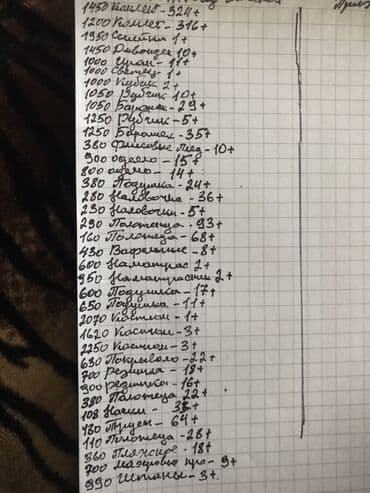 1450 Комлет - 324+
1200 Комлет - 316+
1950 Сатин 1+
1450 10+
1000 11+
1000 1+
1000 Кубик 2+
1050 Рубчик 10+
1050 Барашек - 29+
1250 Рубчик - 5+
1250 Барашек - 35+
380 Флисовые плед - 10+
900 одеело - 15+
800 одеяло - 14+
380 Подушка - 24+
280 Наловочка - 36+
230 Наловочки - 5+
290 Полотенца - 93+
160 Полотенца - 68+
430 Вафельные - 8+
600 Наматрас 2+
950 Наматрасники 2+
600 Подушка - 17+
650 Подушка - 11+
2070 Костюм - 1+
1620 Костюм - 3+
2250 Костюм - 3+
630 Покрывало - 22+
700 Резинка - 18+
900 резинка - 16+
380 Полотенца 22+
108 Носки - 33+
180 Трусы - 64+
110 Полотенца - 28+
360 Пляжное - 18+
700 махровые про - 9+
990 Штаны - 3+